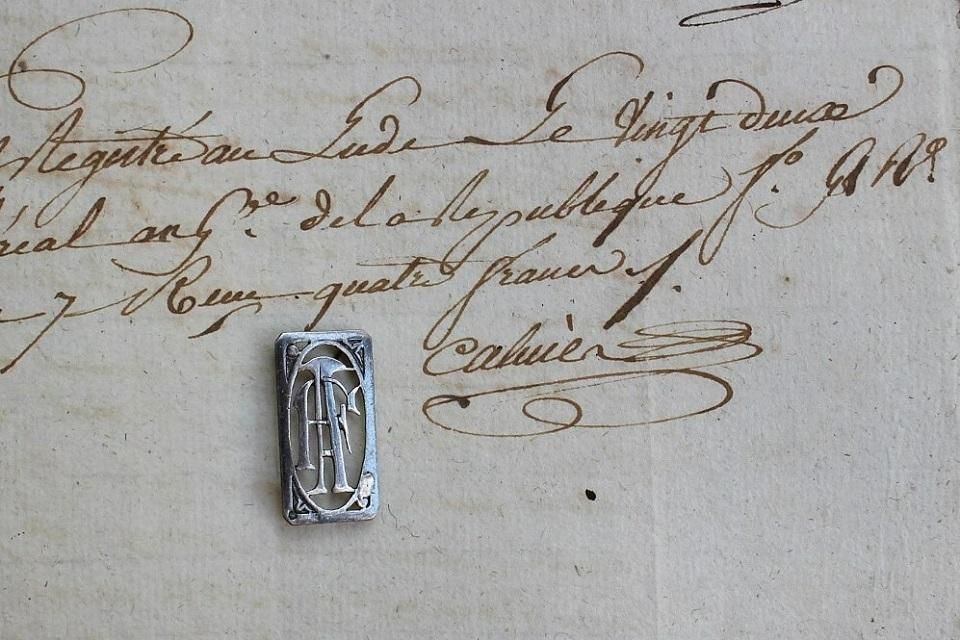 Registré au Lude Le Vingt deux
réal an 6.re de la Republique f.o
7 quatre francs
Cahuier